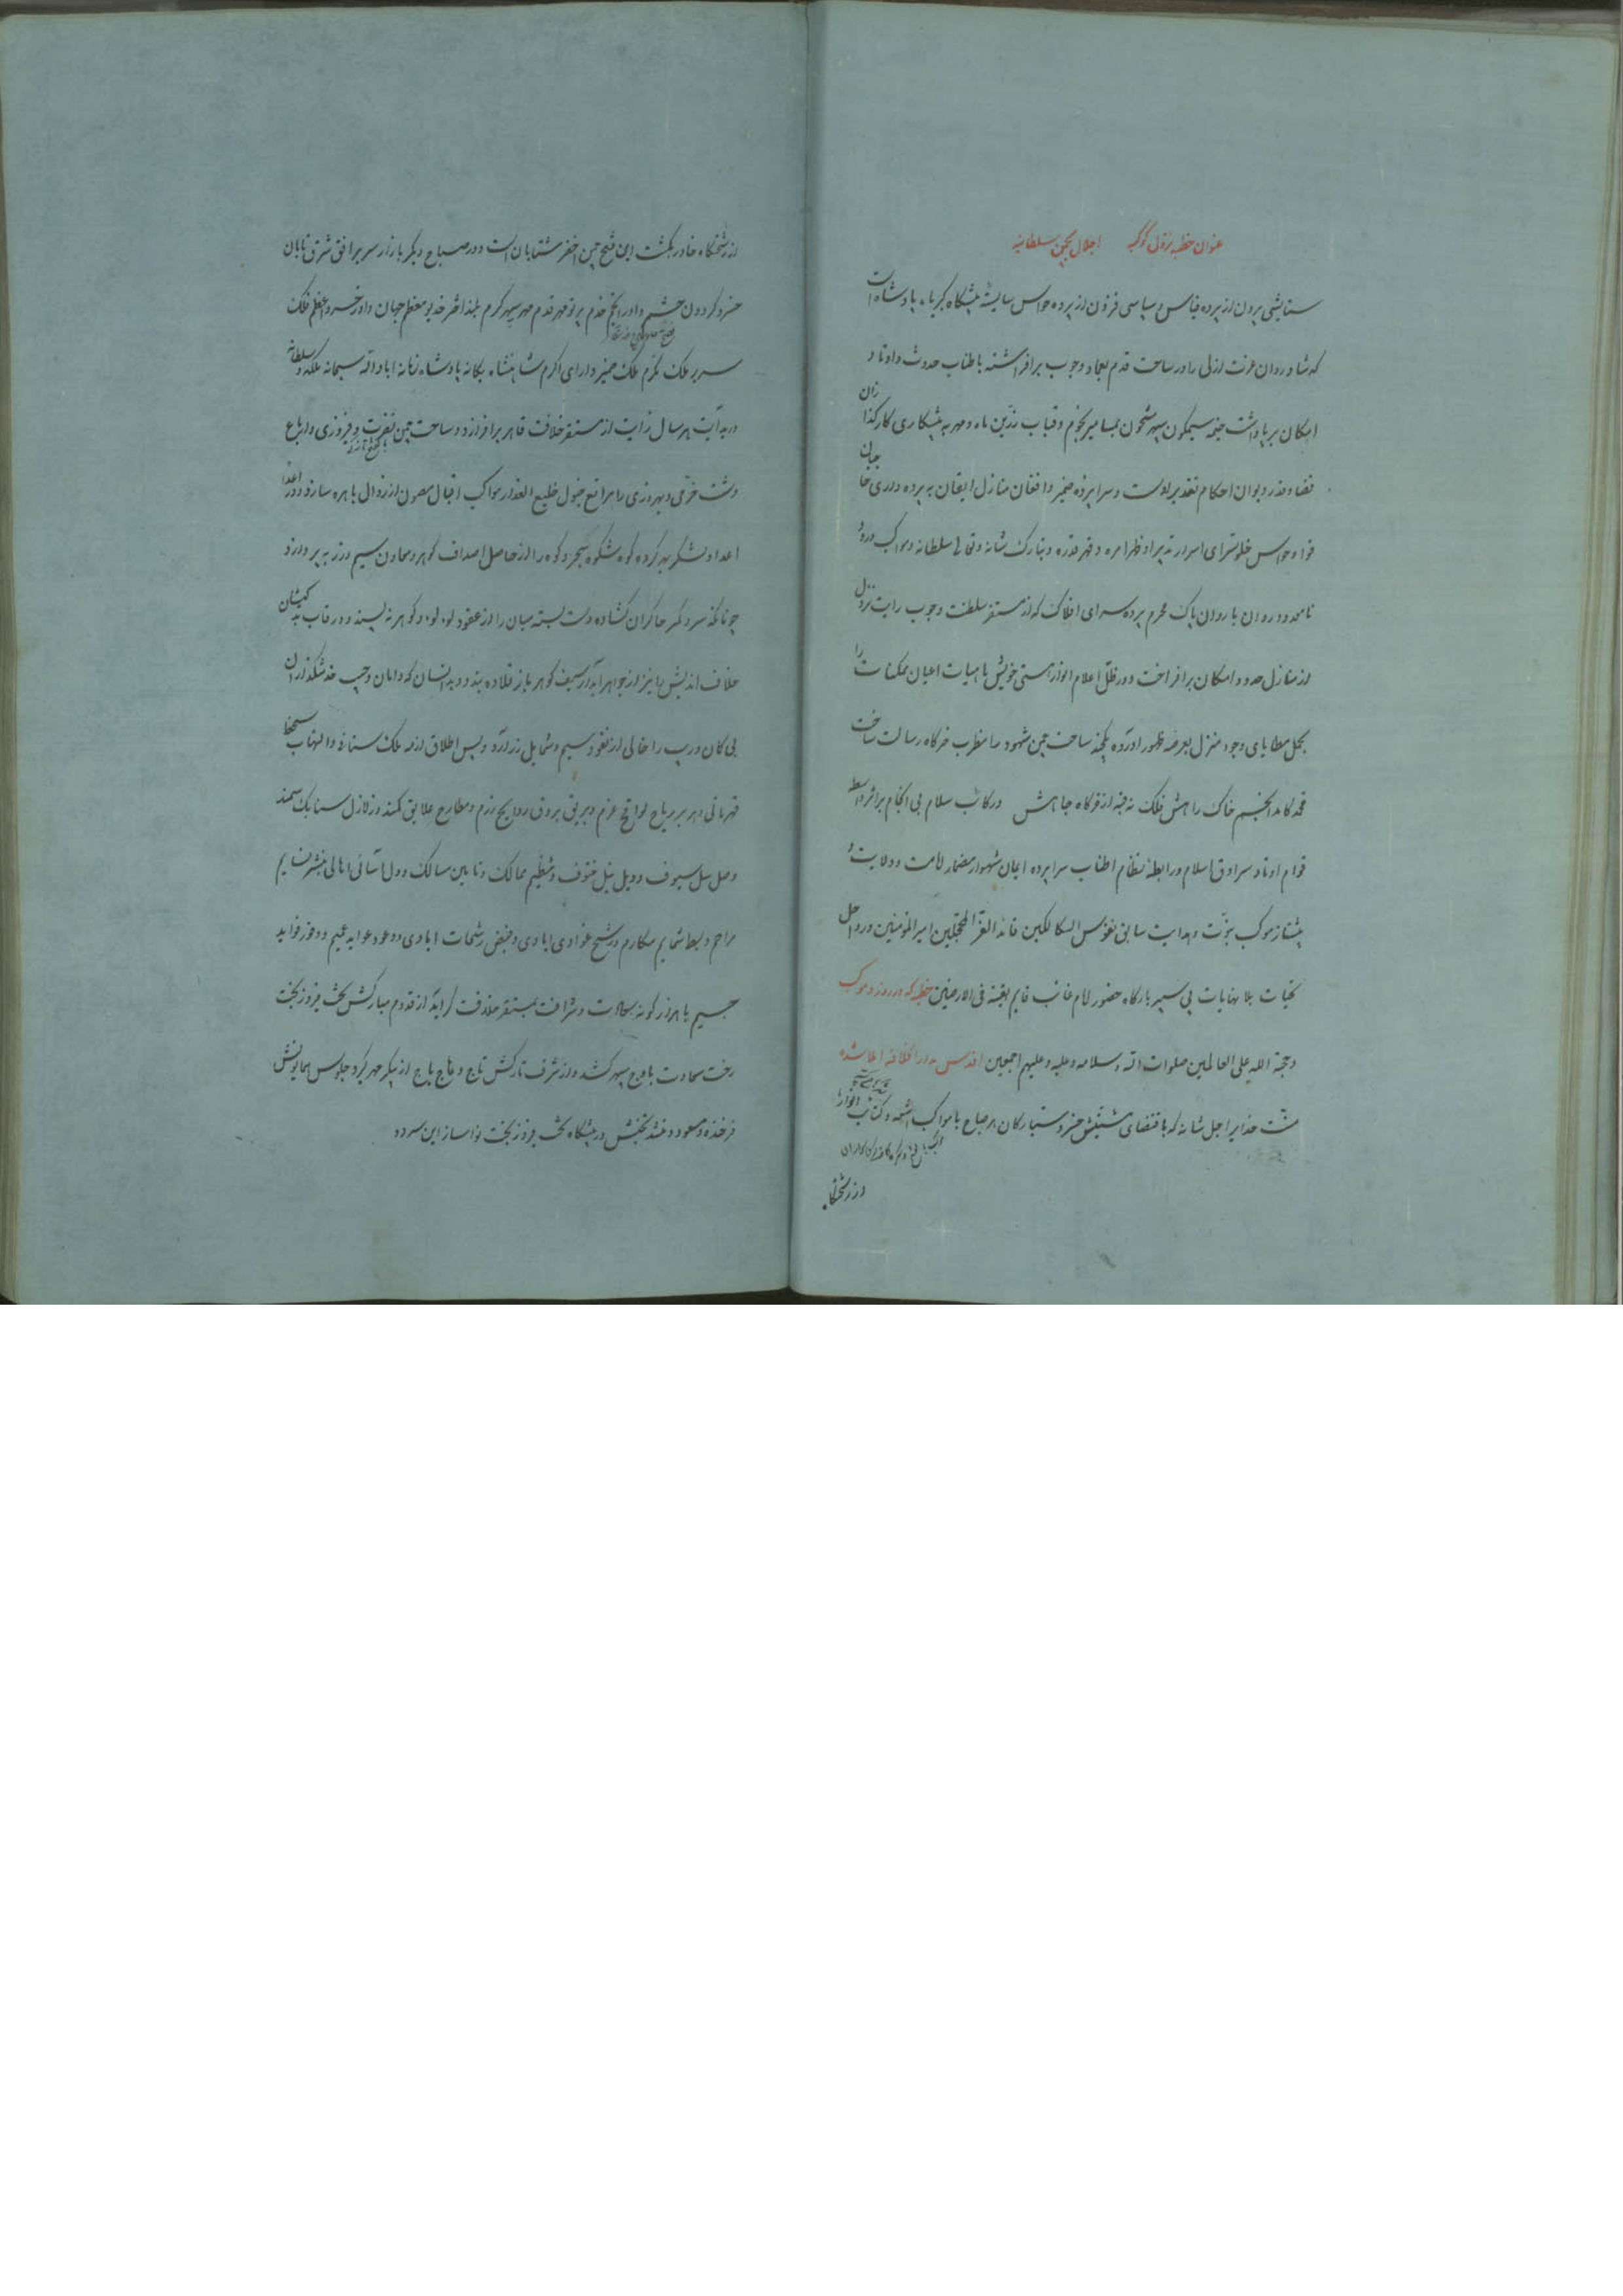 عنوان خطبه نزول کوکبه اجلال بچمن سلطانیه
ستایشی برون از پرده قیاس و سپاسی فزون از پرده حواس شایسته پیشگاه کبریاء پادشاه است
که شادروان عزت ازلی را در ساحت قدم بعماد وجوب برافراشته باطناب حدوث و اوتاد
امکان برپا داشت خیمه سیمگون سپهر مشحون بمسامیر نجوم و قباب زرین ماه و مهر به پیشکاری کارگذاران
قضا و قدر دیوان احکام تقدیر اوست و سراپرده ضمیر واقفان منازل ایقان به پرده داری حاجبان
قوا و حواس خلوتسرای اسرار تدبیر او فظهر امره و قهر قدره و تبارک شانه و تعالی سلطانه و مواکب درود
نامحدود روان با روان پاک محرم پرده سرای افلاک که از مستقر سلطنت وجوب رایت نزول
از منازل حدود امکان برافراخت و در ظل اعلام انوار هستی خویش ماهیات اعیان ممکنات را
بحمل مطایای وجود منزل بعرصه ظهور آورده پنجه ساحت چمن شهود را مضرب خرگاه رسالت ساخت
محمد کامد انجم خاک راهش فلک نه قبه از خرگاه جاهش و رکائب سلام بی انجام بر اثر واسطه
قوام اوتاد سرادق اسلام و رابطه نظام اطناب سراپرده ایمان شهسوار مضمار امامت و ولایت و
پیشتاز موکب نبوت و هدایت سائق نفوس السالکین قائد الغر المحجلین امیر المؤمنین و رواحل
تحیات بلا نهایات پی سپر بارگاه حضور امام غائب قایم بقیة فی الارضین خطبه که در روز ورود موکب
و حجة الله علی العالمین صلوات الله و سلامه علیه و علیهم اجمعین اقدس بدار الخلافه انشا شده
منت خدایرا جل شانه که باقتضای مشیتش خسرو ستارگان هر صباح با مواکب اشعه و کتائب انوار
از زرنگاه
از زرنگاه خاور بگشت این فسیح چمن اخضر شتابان است و در صباح دیگر باز از سریر افق شرق تابان
خسرو گردون حشم داور انجم خدم پرتو مهر قدم مهر سپهر کرم بلند اختر خدیو معظم جهان داور خسرو اعظم فلک
سریر ملک مکرم ملک ضمیر دارای اکرم شاهنشاه یگانه پادشاه زمانه ابد الله سبحانه ملکه و سلطانه
در بدایت هر سال رایت از مستقر خلافت قاهر برافرازد و ساحت چمن نصرت و فیروزی و ارباع
دشت خرمی و بهروزی را مراتع خیول خلیع العذار مواکب اقبال مصون از زوال باهره سازد و
اعداد لشکر بهر کرده کوه شکوه بحر و کوه را از حاصل اصداف گوهر و معادن سیم و زر بپردازد
چونانکه سر و کمر چاکران گشاده دست بسته میان را از عقود لؤلؤ و گوهر ببندد و رقاب
خلاف اندیش را نیز از جواهر آبدار سیف گوهربار قلاده بندد و بدانسان که دامان و جیب خدمتگذاران
بی گمان و ریب را خالی از نقود سیم و شمایل زر ندارد و پس اطلاق از مه ملک ستانی و التهاب سخط
قهرمانی و هبر بر ریاح لواقح عزم و بریق بروق روایح رزم و مطارح علایق کمند و زلازل سنابک سمند
و صل سل سیوف و ویل نیل حتوف و تنظیم ممالک و تامین مسالک و دل آسائی اهالی بنشر نسایم
مراحم و بسط شمایم مکارم و ترشیح غوادی ایادی و فیض رشحات ایادی و وعود عواید عمیم و وفور فواید
جسیم با هزار گونه سعادت و شرافت بمستقر خلافت گراید از قدوم مبارکش تخت فیروزبخت
رخت سعادت باوج سپهر کشد و از شرف تارکش تاج وهاج باج از پیکر مهر گیرد جلوس همایونش
فرخنده و مسعود و خنده بختش در پیشگاه تخت فیروزبخت نواساز این سرود